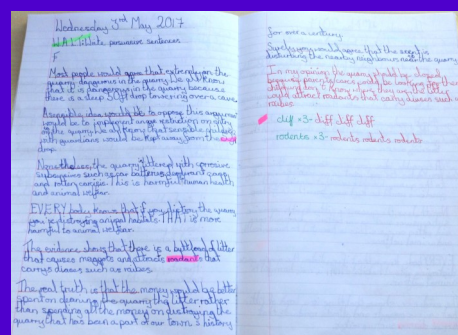 Wednesday 3rd May 2017
WALT: Write persuasive sentences
F
Most people would agree that extremely on the
quarry dangerous in the quarry. We all know
that it is dangerous in the quarry because
there is a steep 50ft drop towering over a cave.
A sensible idea would be to oppose this argument
would be to implement an age restriction on entry
to the quarry. We all know that sensible children
with guardians would be kept away from the
drop.
Nonetheless, the quarry littered with corrosive
substances such as car batteries,
and rotting carcass. This is harmful human health
and animal welfare.
EVERYbody knows that if you the quarry
you're destroying animal habitats. THAT is more
harmful to animal welfare.
The evidence shows that there is a of litter
that causes maggots and attracts that
carrys diseses such as raibes.
The real truth is that the money would be better
spent on cleaning the quarry the litter rather
than spending all the money on destroying the
quarry that has been a part of our town's history
for over a century.
Surely you would agree that the scent is
disturbing the nearby neighbours near the quarry
In my opinion the quarry should be closed
because parents/carers would be worry for their
children don't know when they use the litter
could attract rodents that carry diseses such as
raibes.
cliff x3 - cliff cliff cliff
rodents x3 - rodents rodents rodents